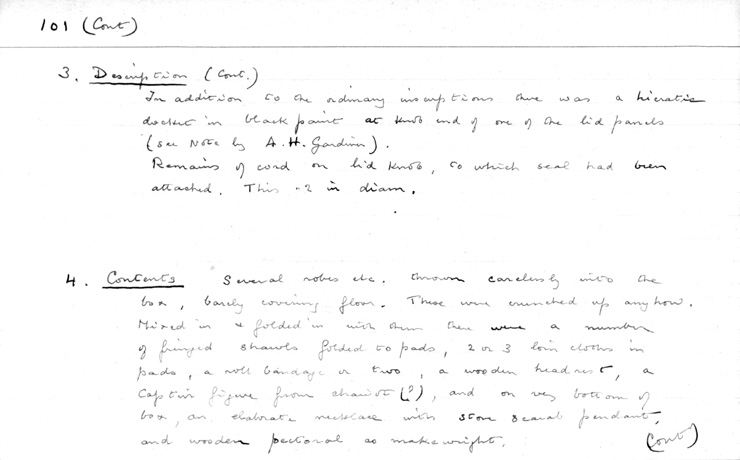 101 (Cont)
3. Description (Cont.)
In addition to the ordinary inscriptions there was a hieratic
docket in black paint at knob end of one of the lid panels
(see Note by A.H. Gardiner).
Remains of cord on lid knob, to which seal had been
attached. This .2 in diam.
4. Contents Several robes etc. thrown carelessly into the
box, barely covering floor. These were crunched up anyhow.
Mixed in & folded in with them there were a number
of fringed shawls folded to pads, 2 or 3 loin cloths in
pads, a roll bandage or two, a wooden headrest, a
Captive figure from chariot (?), and on very bottom of
box, an elaborate necklace with stone scarab pendant,
and wooden pectoral as makeweight.
(Cont)